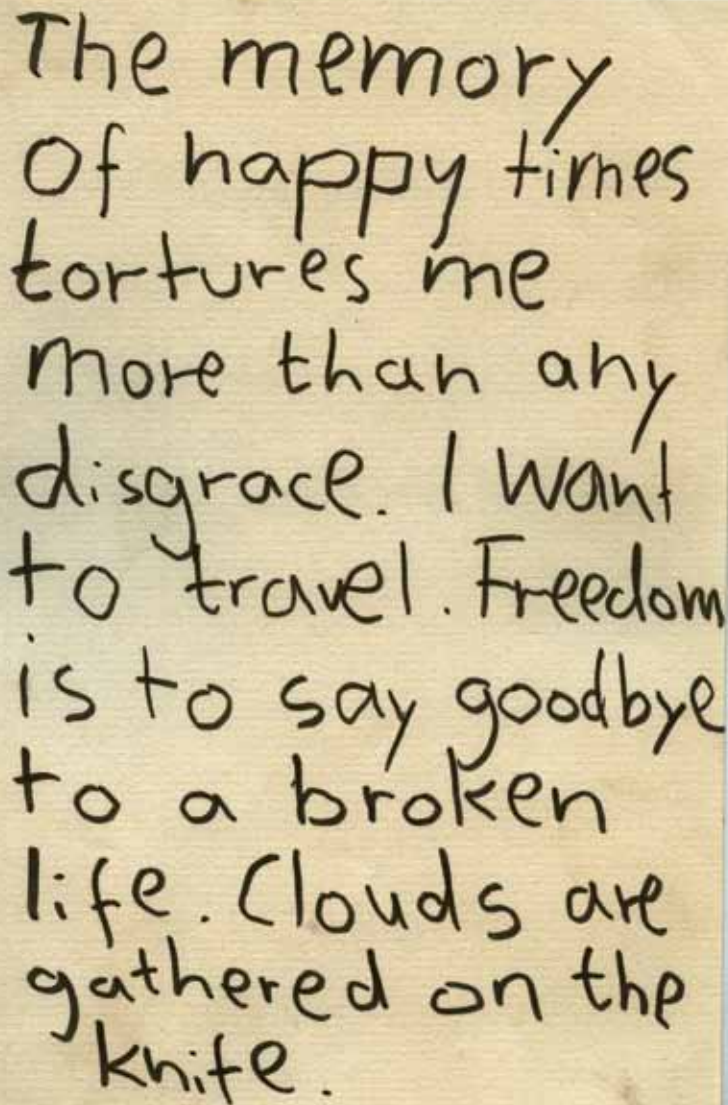 The memory
Of happy times
tortures me
more than any
disgrace. I want
to travel. Freedom
is to say goodbye
to a broken
life. Clouds are
gathered on the
knife.